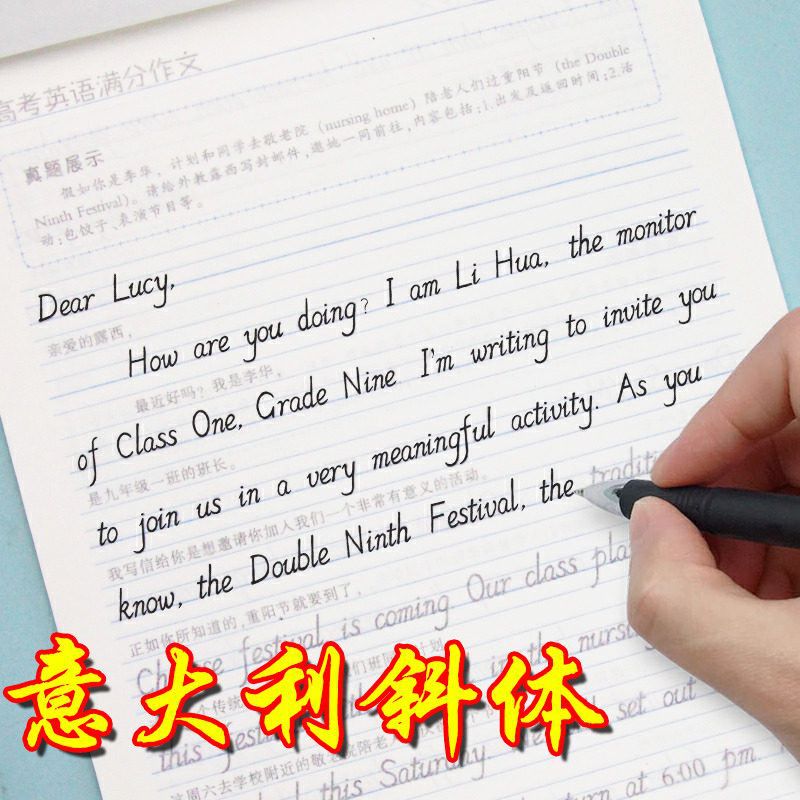 高考英语满分作文
真题展示
假如你是李华，计划和同学去敬老院（nursing home）陪老人们过重阳节（the Double
Ninth Festival）。请给外教露西写封邮件，邀她一同前往，内容包括：1.出发及返回时间；2.活
动：包饺子、表演节目等。
Dear Lucy,
亲爱的露西，
How are you doing? I am Li Hua, the monitor
最近好吗？我是李华，
of Class One, Grade Nine I'm writing to invite you
是九年级一班的班长。
to join us in a very meaningful activity. As you
我写信给你是想邀请你加入我们一个非常有意义的活动。
know, the Double Ninth Festival, the
正如你所知道的，重阳节就要到了，
festival is coming Our class
意大利斜体
个传统
in the
this
这周六去学校附近的敬老院陪老
set out
this Saturday.
at 6:00 pm.